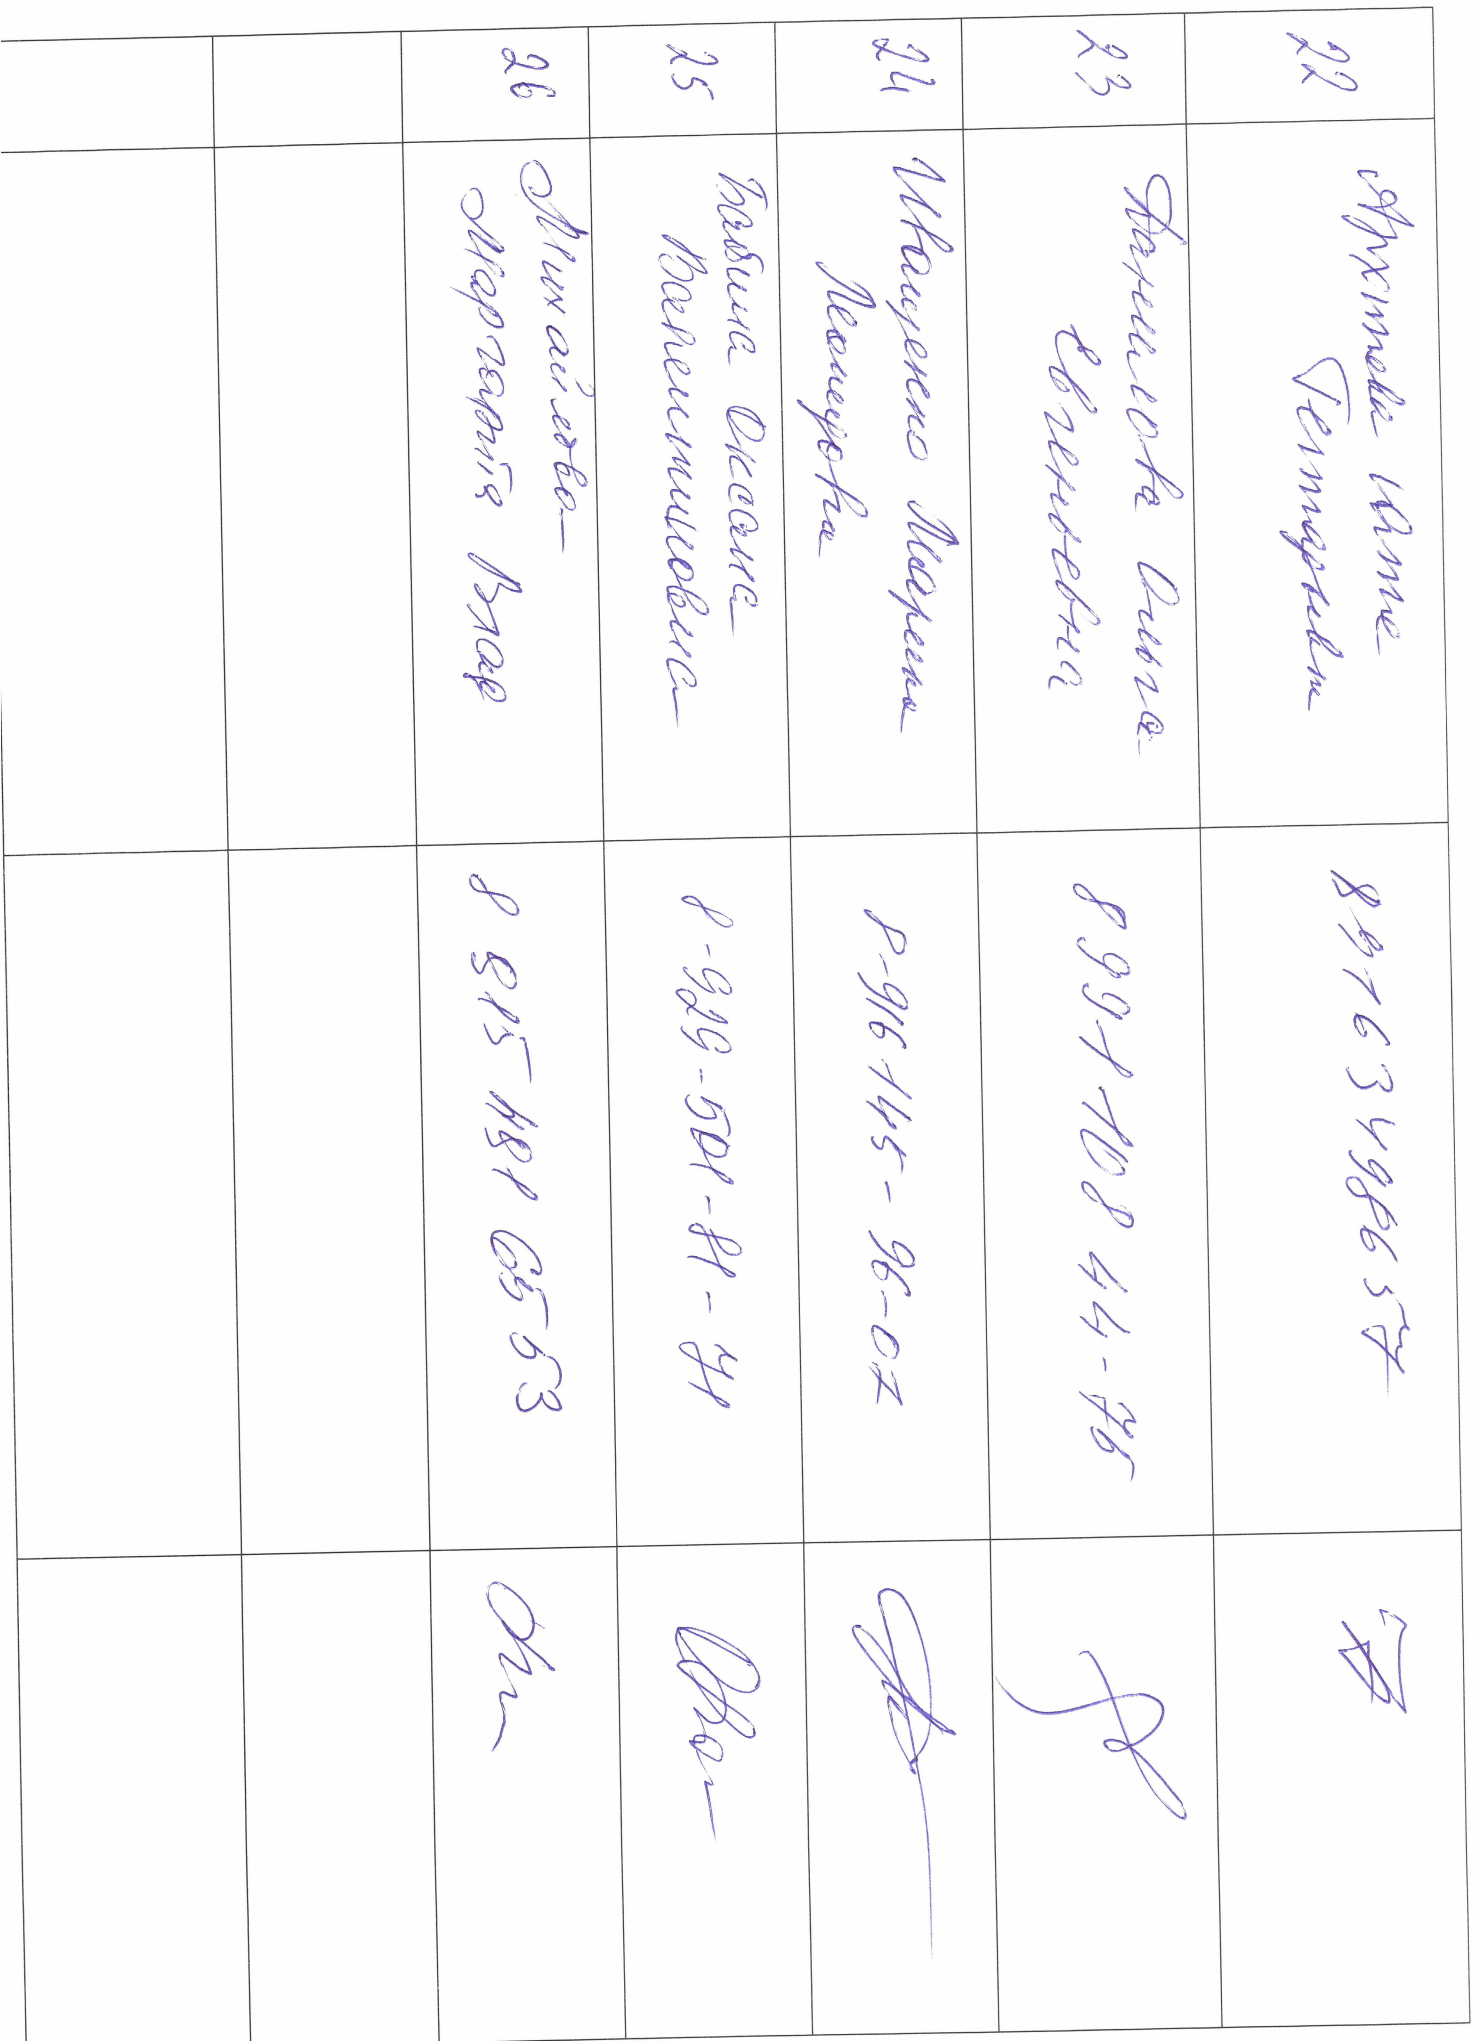 22
Юлия
89163498657
23
Данилова Ольга
Евгеньевна
8991108 44-76
24
Иващенко Марина
Леонидовна
8-916 145-96-07
25
Бабина Оксана
Вениаминовна
8-929-501-81-71
26
Михайлова
Маргарита Влад
8 915 481 65 53